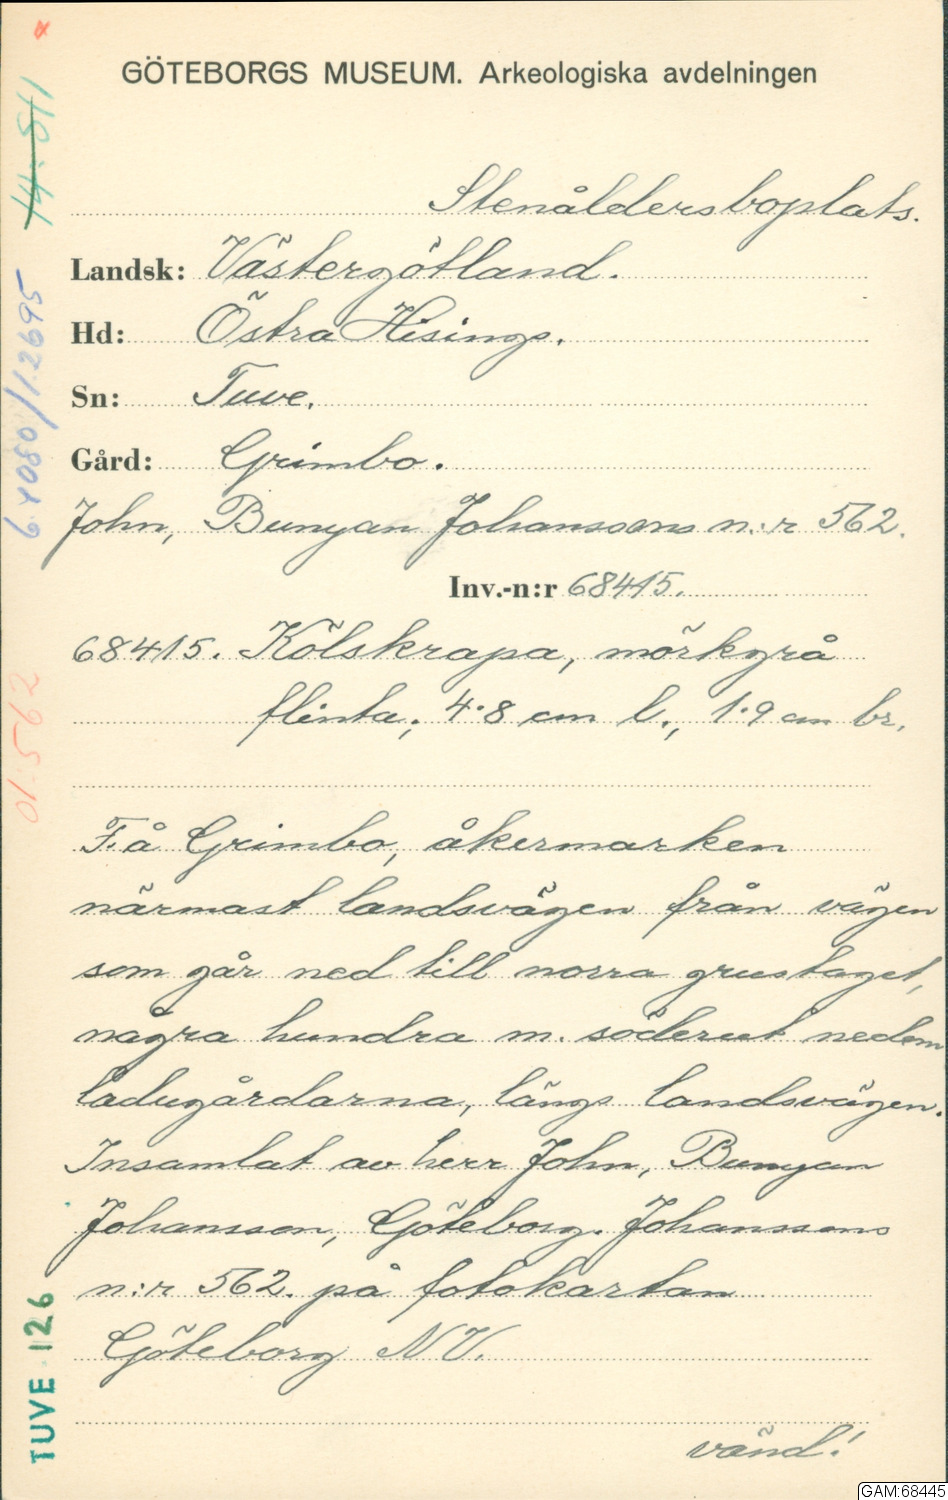 GÖTEBORGS MUSEUM. Arkeologiska avdelningen
Stenåldersboplats.
Landsk: Västergötland.
Hd: Östra Hisings.
Sn: Tuve.
Gård: Grimbo.
John, Bunyan Johanssons n:r 562.
Inv.-n:r 68415.
68415. Kölskrapa, mörkgrå
flinta; 4.8 cm l., 1.9 cm br.
F. å Grimbo, åkermarken
närmast landsvägen från vägen
som går ned till norra grustaget,
några hundra m. söderut nedom
ladugårdarna, längs landsvägen.
Insamlat av herr John, Bunyan
Johansson, Göteborg. Johanssons
n:r 562. på fotokartan
Göteborg N V.
vänd!
14:511
01:562
TUVE 126
GAM:68445